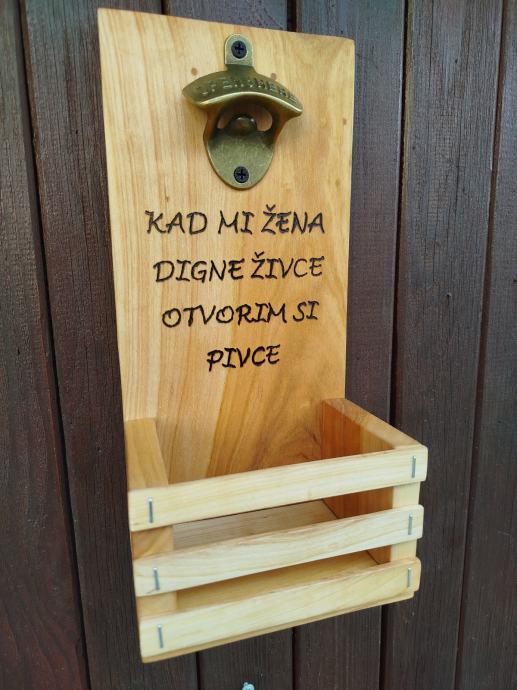 OPEN HERE
KAD MI ŽENA
DIGNE ŽIVCE
OTVORIM SI
PIVCE